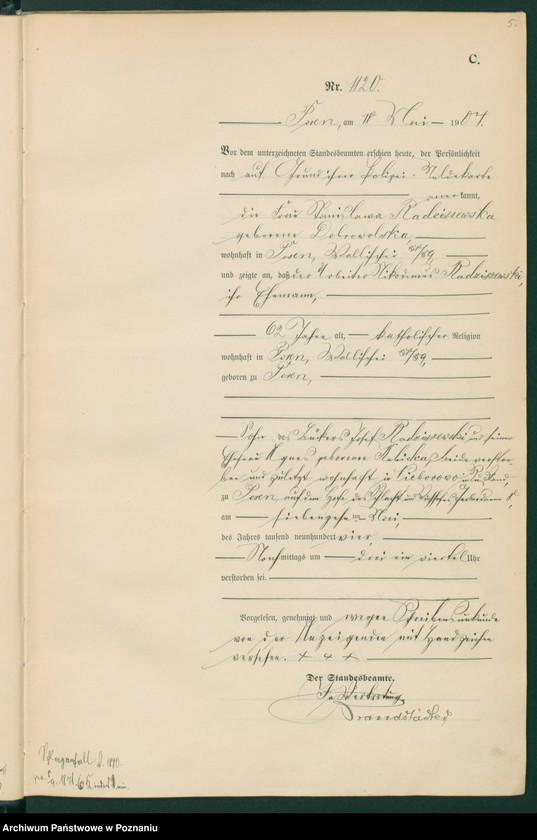 5.
C.
Nr. 1120.
Posen, am Mai 1904.
Vor dem unterzeichneten Standesbeamten erschien heute, der Persönlichkeit
nach auf Grund ihrer Polizei-Meldekarte
anerkannt,
die Frau Stanislawa Radziszewska
geborene Dobrowolska,
wohnhaft in Posen, Wallischei
und zeigte an, daß der Arbeiter Radziszewski,
ihr Ehemann,
62 Jahre alt, katholischer Religion
wohnhaft in Posen, Wallischei
geboren zu Posen,
Sohn des Josef Radziszewski und seiner
Ehefrau Agnes geborenen beide verstor-
ben und zuletzt wohnhaft in
zu Posen, auf dem Hofe des
am siebenzehn Mai,
des Jahres tausend neunhundert vier,
Nachmittags um drei ein viertel Uhr
verstorben sei.
Vorgelesen, genehmigt und wegen Schreibensunkunde
von der Anzeigenden mit Handzeichen
versehen. + + +
Der Standesbeamte.
In Vertretung.
Brandstädter
Archiwum Państwowe w Poznaniu